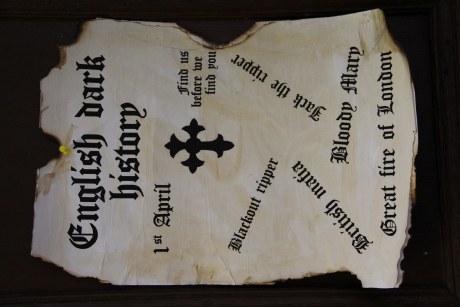 English dark
history
1st April
Find us
before we
find you
Jack the ripper
Blackout ripper
Bloody Mary
British mafia
Great fire of London